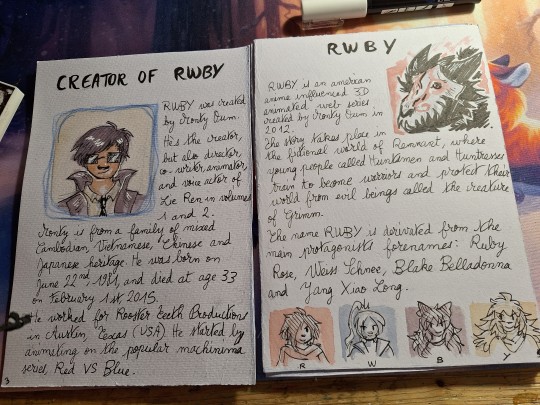 CREATOR OF RWBY
RWBY was created
by Monty Oum.
He's the creator,
but also director,
co-writer, animator,
and voice actor of
Lie Ren in volumes
1 and 2.
Monty is from a family of mixed
Cambodian, Vietnamese, Chinese and
Japanese heritage. He was born on
June 22nd, 1981, and died at age 33
on February 1st, 2015.
He worked for Rooster Teeth Productions
in Austin, Texas (USA). He started by
animating on the popular machinima
series, Red VS Blue.
3
RWBY
RWBY is an american
anime influenced 3D
animated web series
created by Monty Oum in
2012.
The story takes place in
the fictional world of Remnant, where
young people called Huntsmen and Huntresses
train to become warriors and protect their
world from evil beings called the creature
of Grimm.
The name RWBY is derivated from the
main protagonists forenames: Ruby
Rose, Weiss Schnee, Blake Belladonna
and Yang Xiao Long.
R W B Y